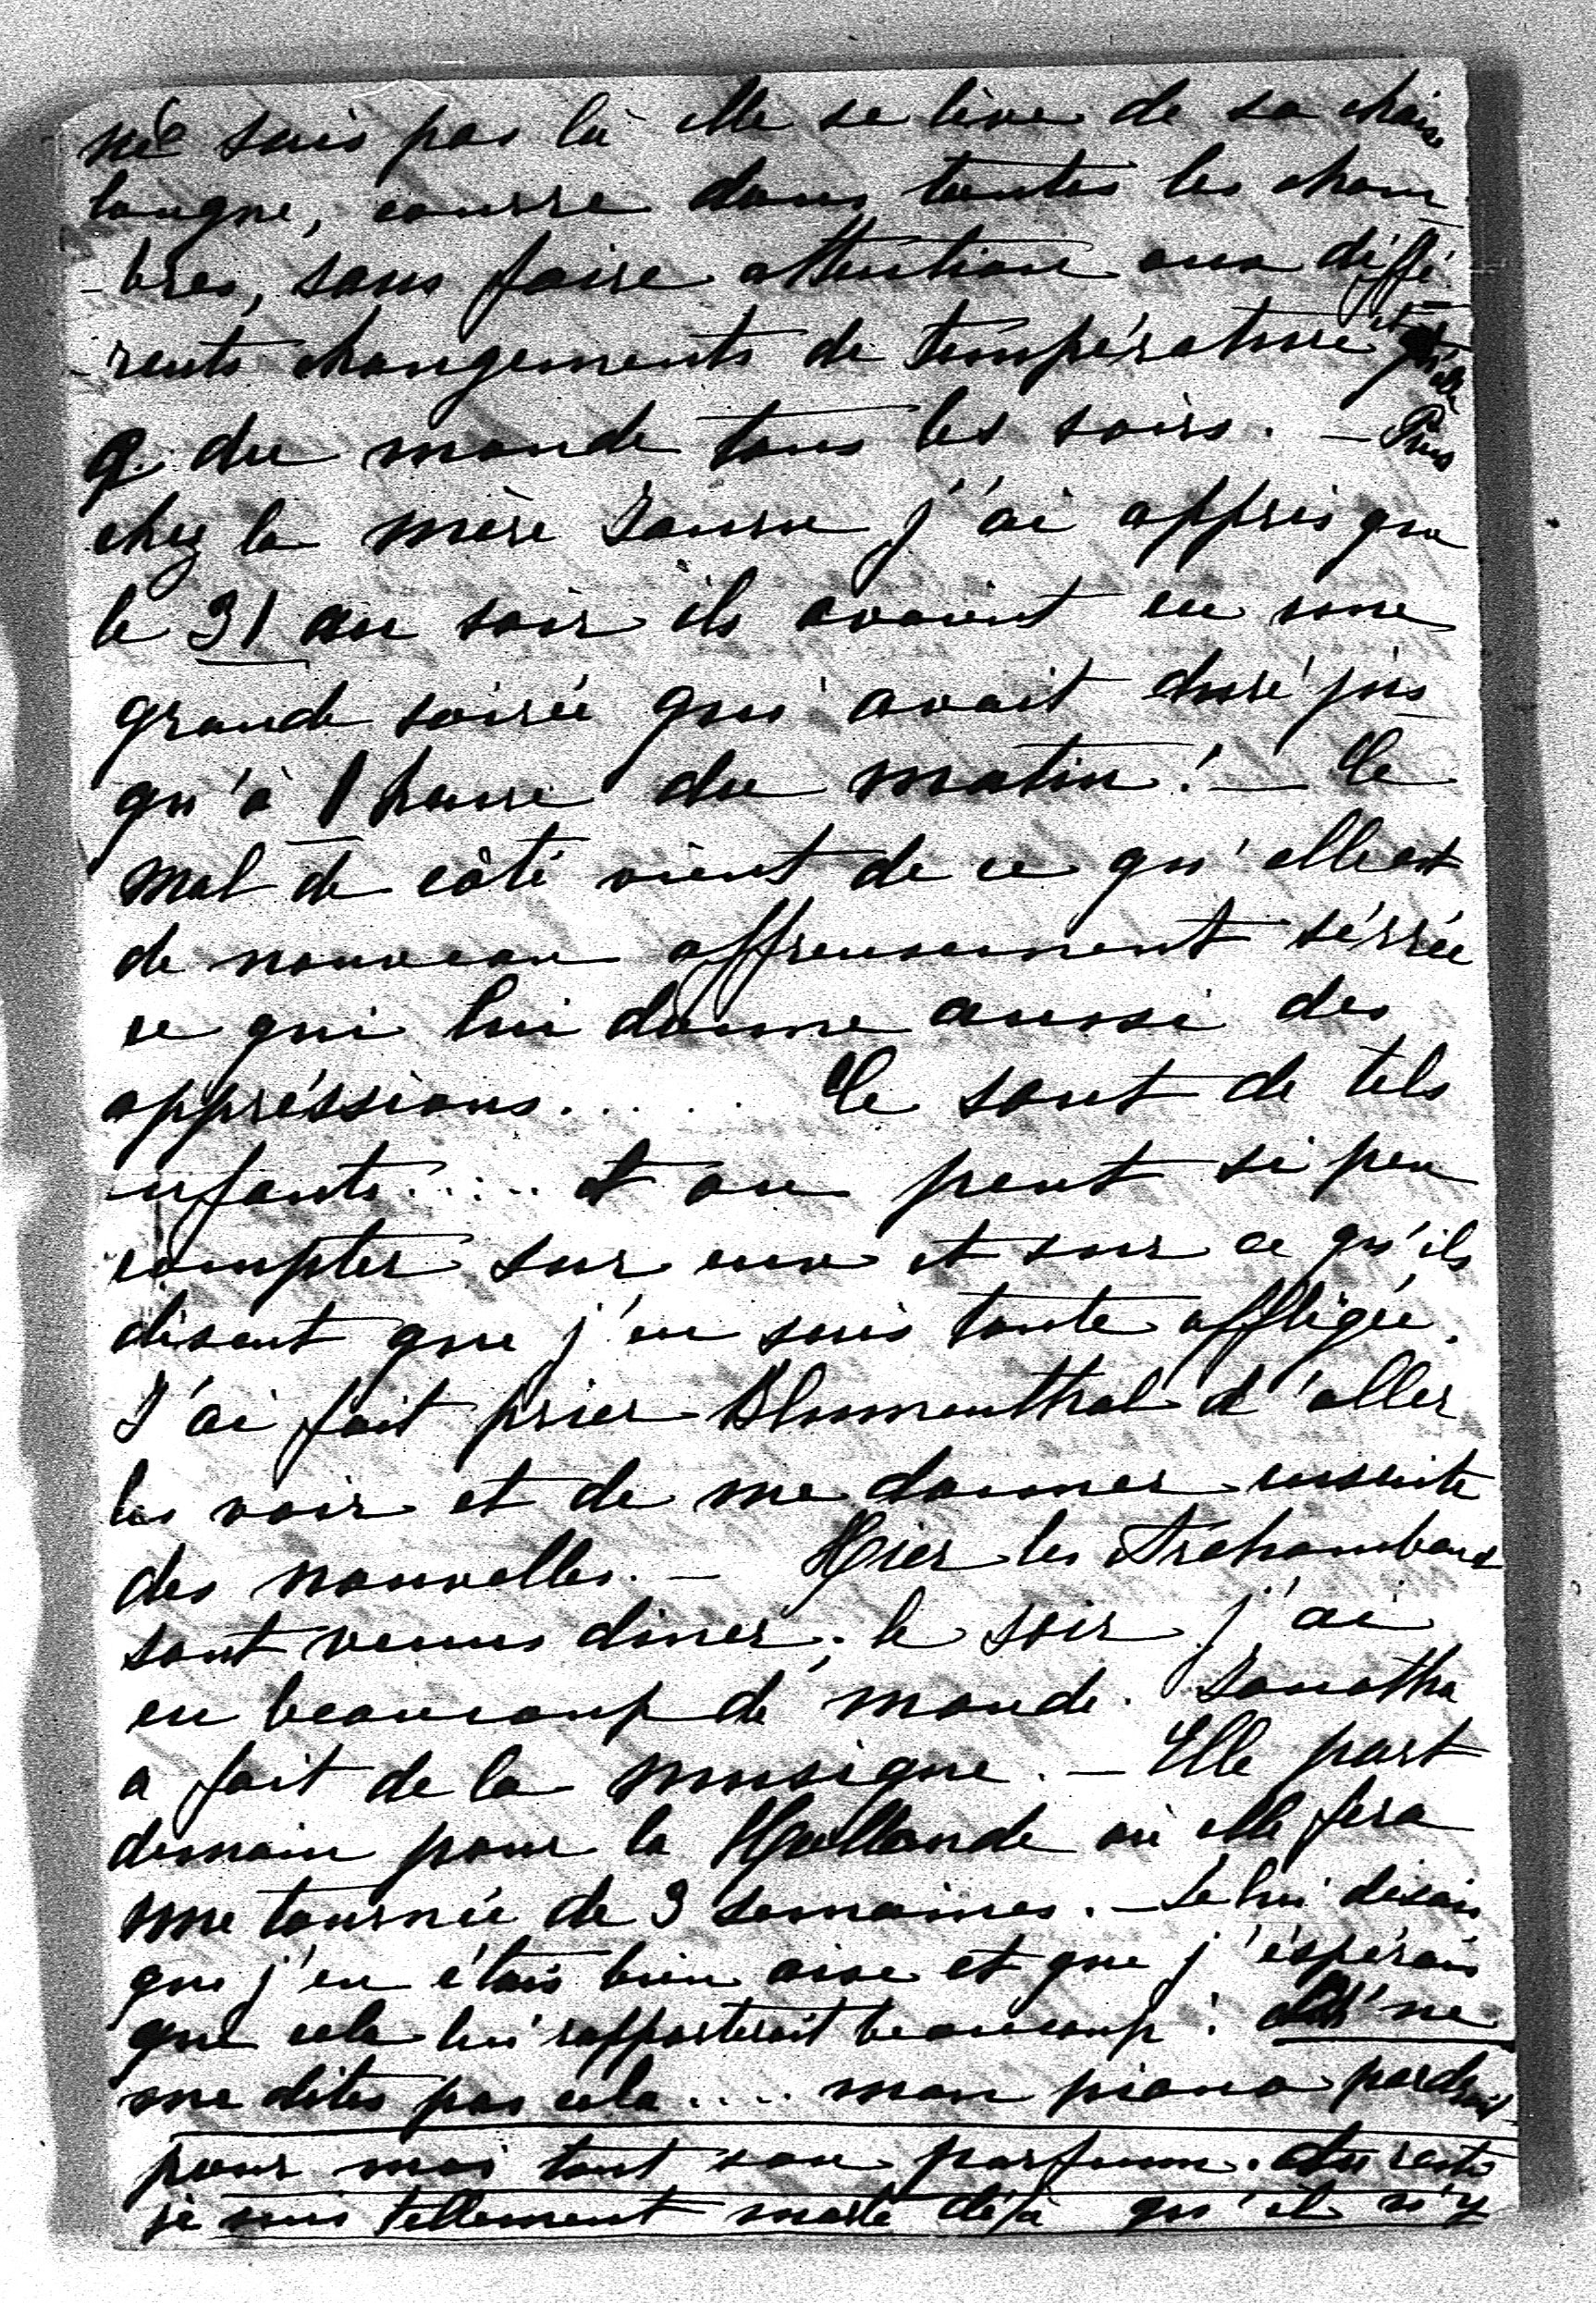 ne suis pas là elle se lève de sa chaise
longue, courre dans toutes les cham
-bres, sans faire attention aux diffé
-rents changements de température et
q. du monde tous les soirs. — Puis
chez la mère j'ai appris que
le 31 au soir ils avaient eu une
grande soirée qui avait duré jus
qu'à 1 heure du matin! — Le
mal de côté vient de ce qu'elle est
de nouveau affreusement sérrée
ce qui lui donne aussi des
oppréssions...... Ce sont de tels
enfants..... et on peut si peu
compter sur eux et sur ce qu'ils
disent que j'en suis toute affligée.
J'ai fait prier Blumenthal d'aller
les voir et de me donner ensuite
des nouvelles. — Hier les
sont venus diner. le soir j'ai
eu beaucoup de monde.
a fait de la musique. — Elle part
demain pour la Hollande où elle fera
une tournée de 3 semaines. — Je lui disais
que j'en étais bien aise et que j'éspérais
que cela lui rapporterait beaucoup: ne
me dites pas cela.... mon piano perdrait
pour moi tout son parfum. du reste
je suis tellement morte déjà qu'il n'y